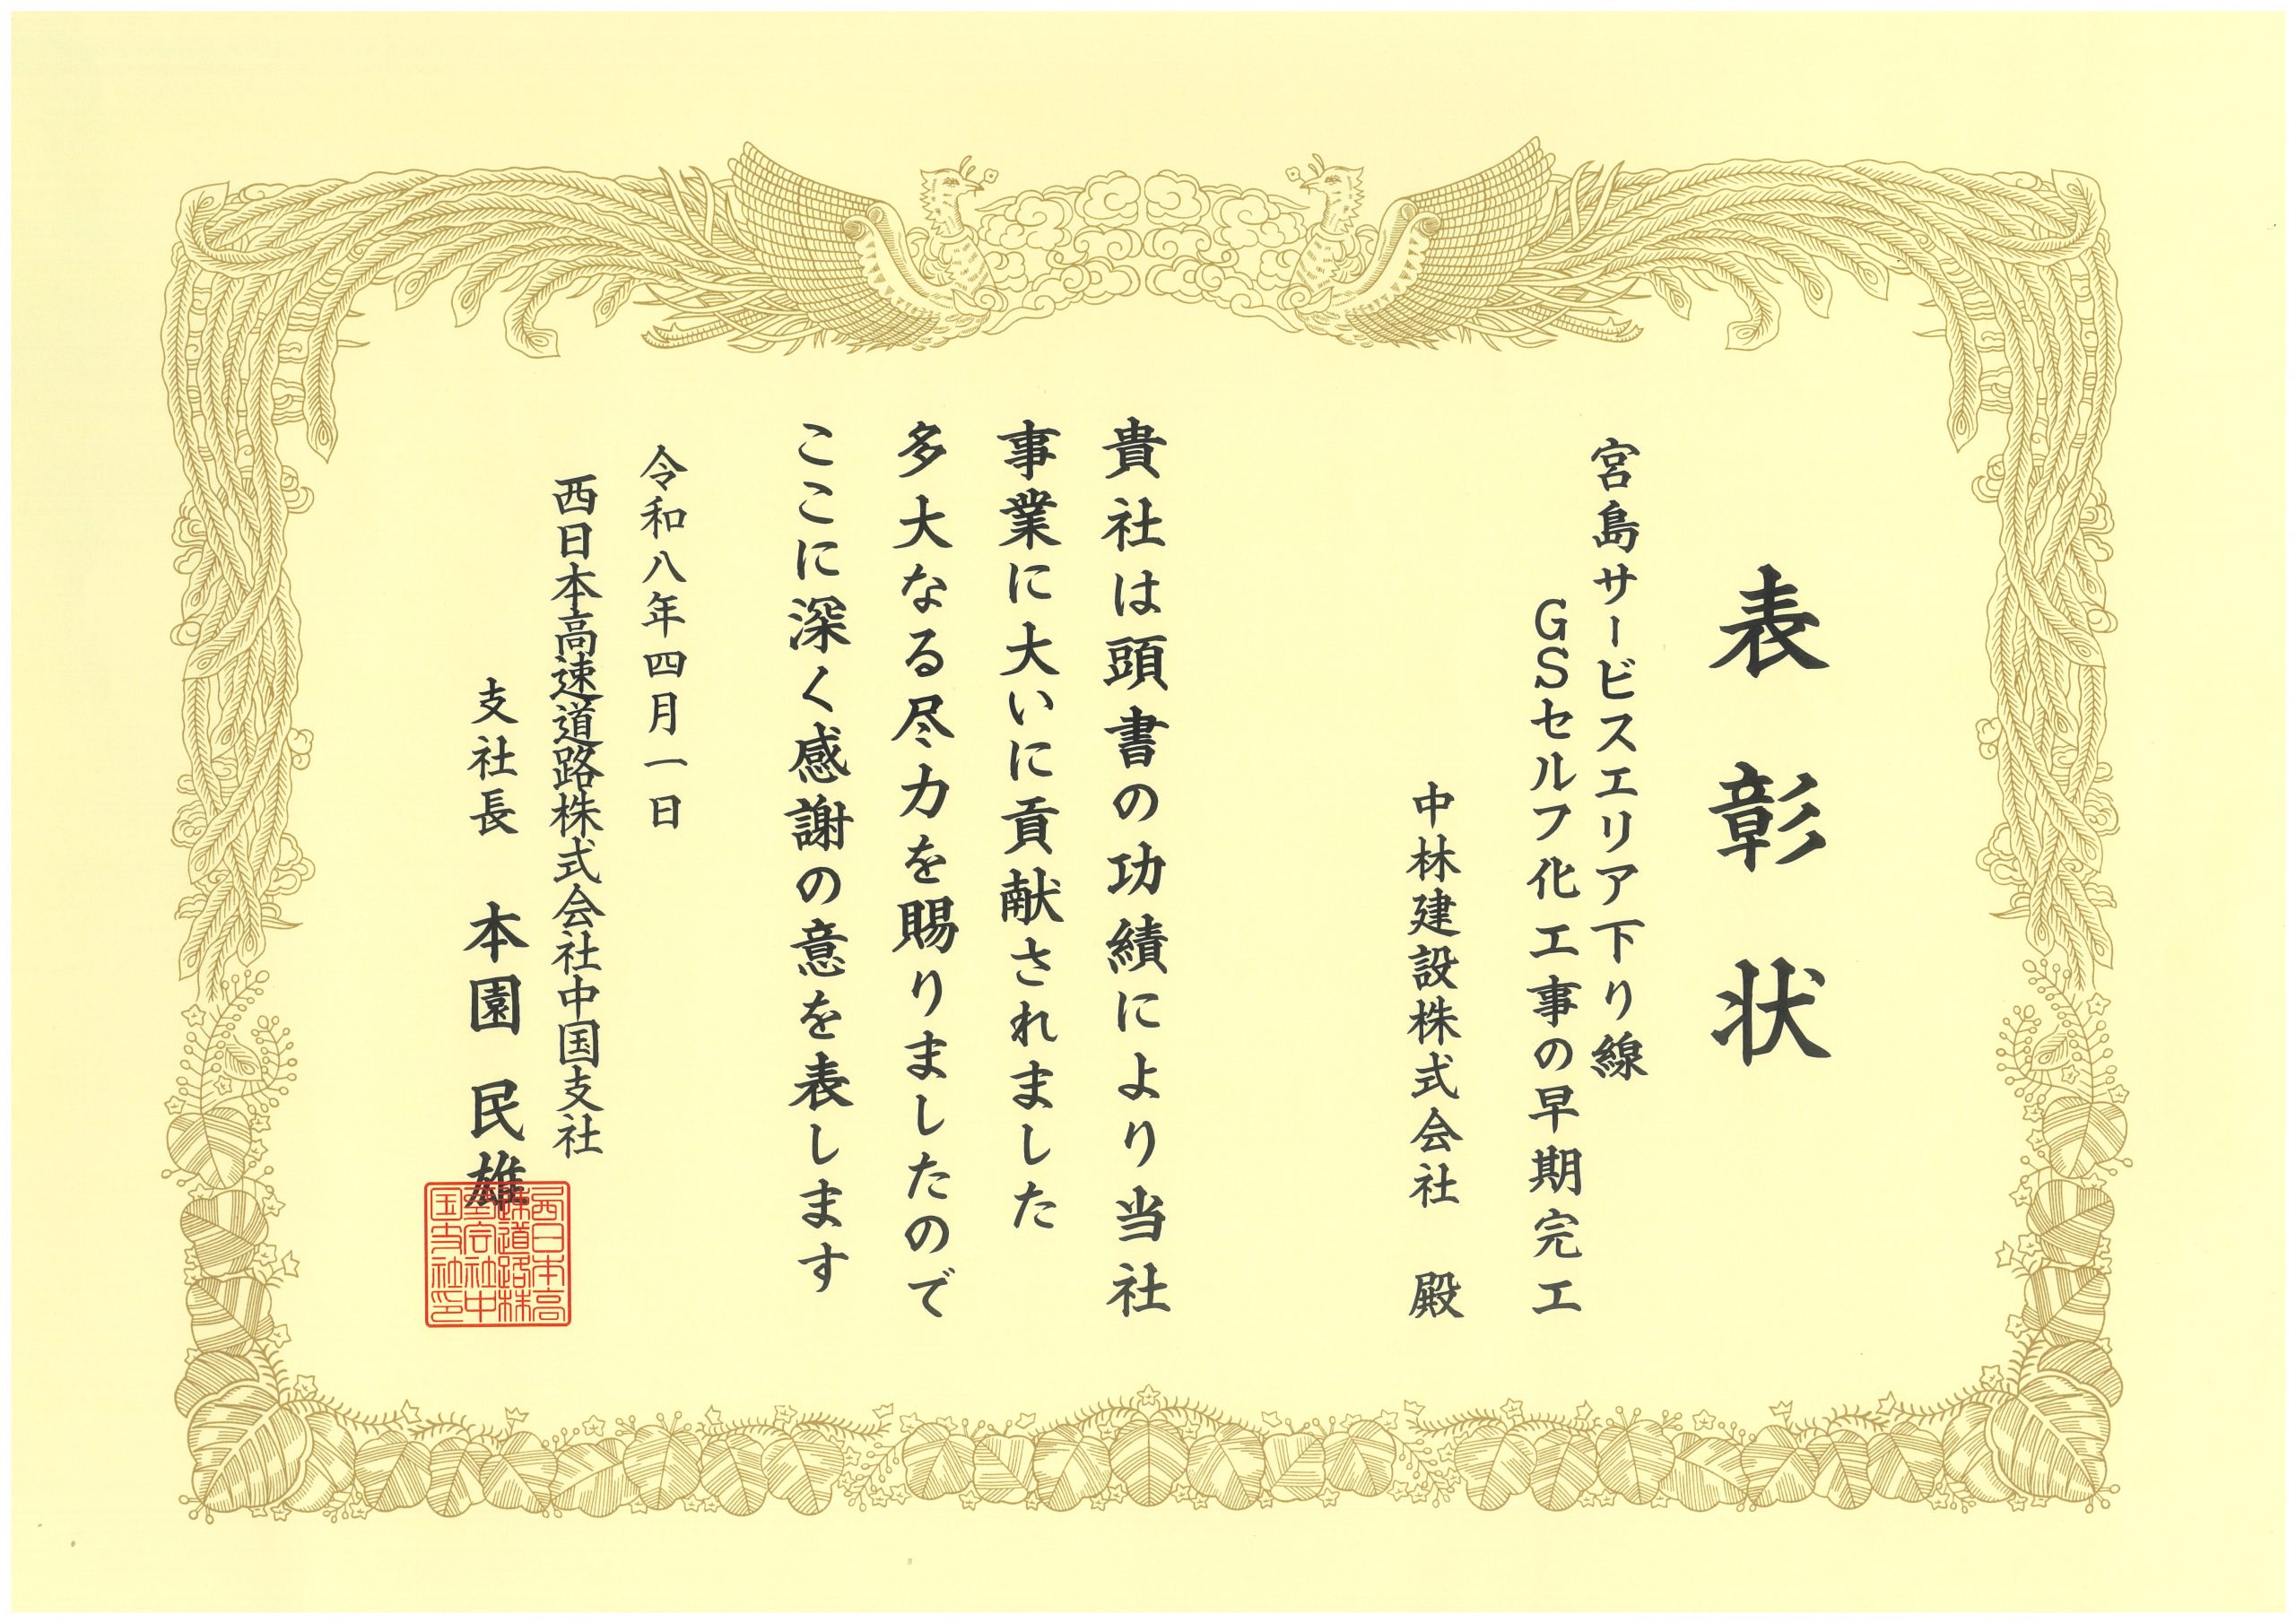 表彰状
宮島サービスエリア下り線
GSセルフ化工事の早期完工
中林建設株式会社 殿
貴社は頭書の功績により当社
事業に大いに貢献されました
多大なる尽力を賜りましたので
ここに深く感謝の意を表します
令和八年四月一日
西日本高速道路株式会社中国支社
支社長 本園民雄
西日本高
速道路株
式会社中
国支社印